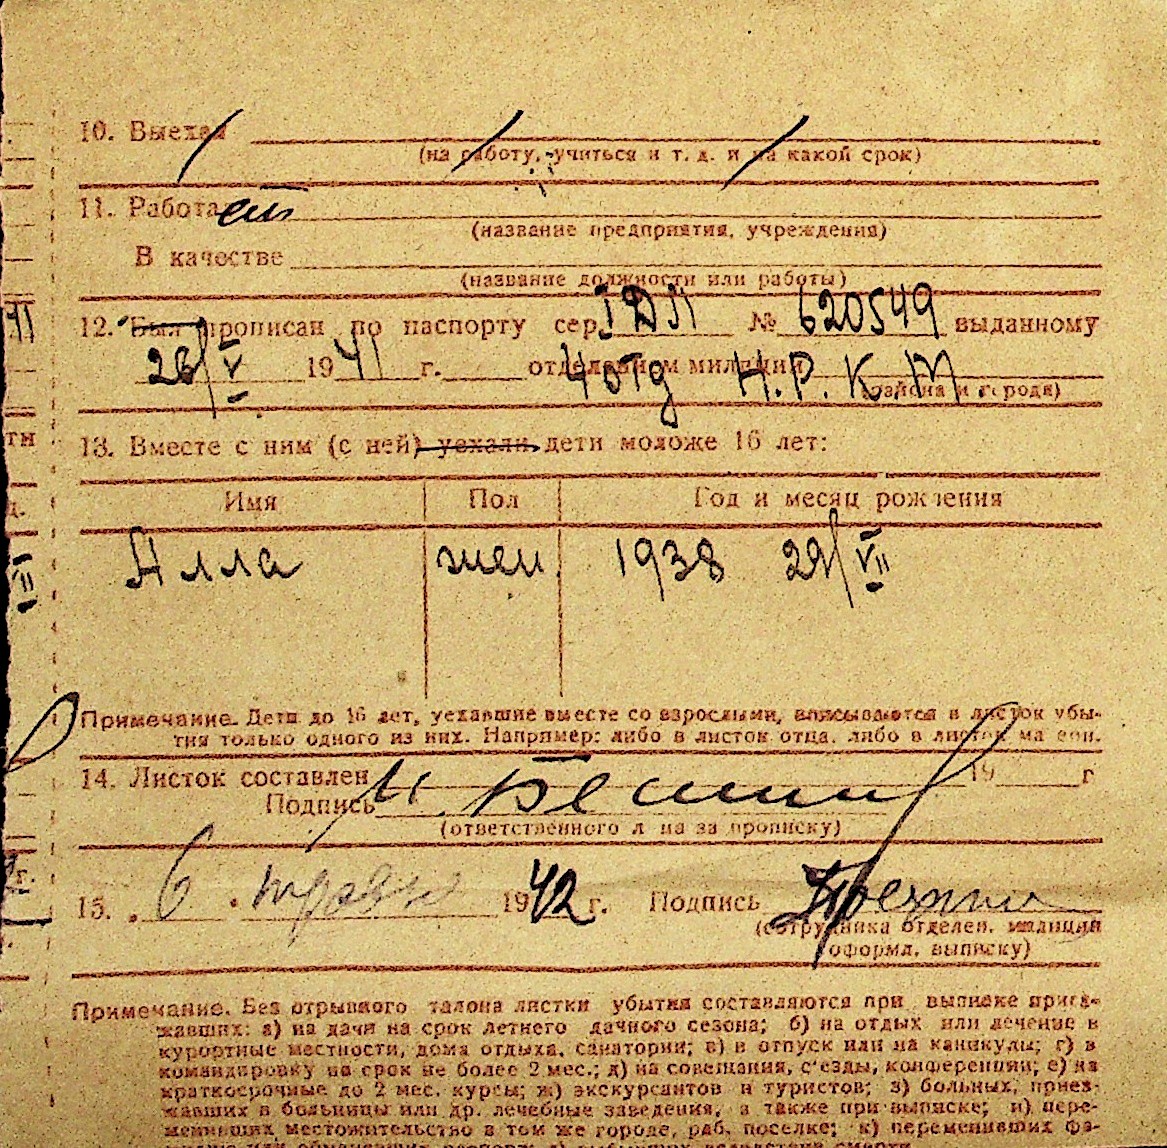 10. Выехал
(на работу, учиться и т. д. и на какой срок)
11. Работает
(название предприятия, учреждения)
В качестве
(название должности или работы)
12. Был прописан по паспорту сер. IДП № 620549 выданному
28/V 1941 г. отделением милиции 4 отд Н.Р.К.М.
(района и города)
13. Вместе с ним (с ней) уехали дети моложе 16 лет:
Имя Пол Год и месяц рождения
Алла жен 1938 29/VII
Примечание. Дети до 16 лет, уехавшие вместе со взрослыми, вписываются в листок убы-
тия только одного из них. Например: либо в листок отца, либо в листок матери.
14. Листок составлен 19 г
Подпись
(ответственного лица за прописку)
15. 6 1942 г. Подпись
(сотрудника отделен. милиции
оформл. выписку)
Примечание. Без отрывного талона листки убытия составляются при выписке приез-
жавших: а) на дачи на срок летнего дачного сезона; б) на отдых или лечение в
курортные местности, дома отдыха, санатории; в) в отпуск или на каникулы; г) в
командировку на срок не более 2 мес.; д) на совещания, с'езды, конференции; е) на
краткосрочные до 2 мес. курсы; ж) экскурсантов и туристов; з) больных, приез-
жавших в больницы или др. лечебные заведения, а также при выписке; и) пере-
менивших местожительство в том же городе, раб. поселке; к) переменивших фа-